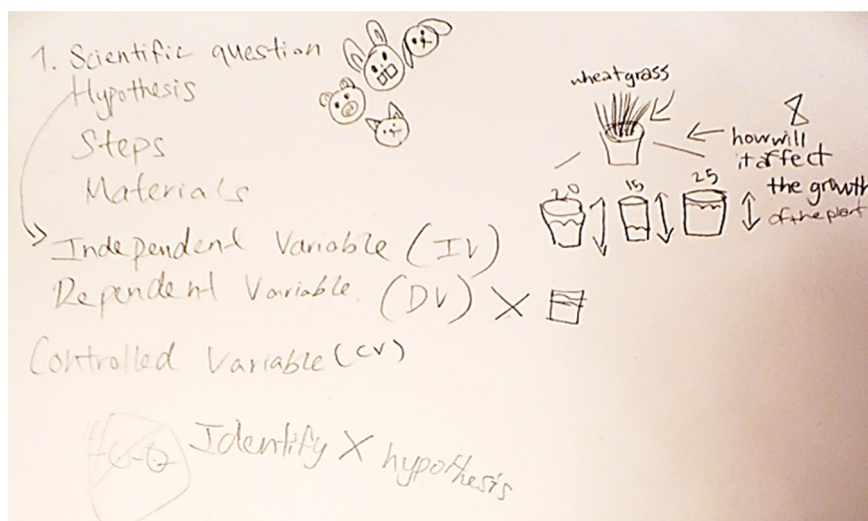 1. Scientific question
Hypothesis
Steps
Materials
Independent Variable (IV)
Dependent Variable (DV) X
Controlled Variable (CV)
Identify X hypothesis
wheatgrass
8
how will
it affect
the growth
of the plant
20 15 25